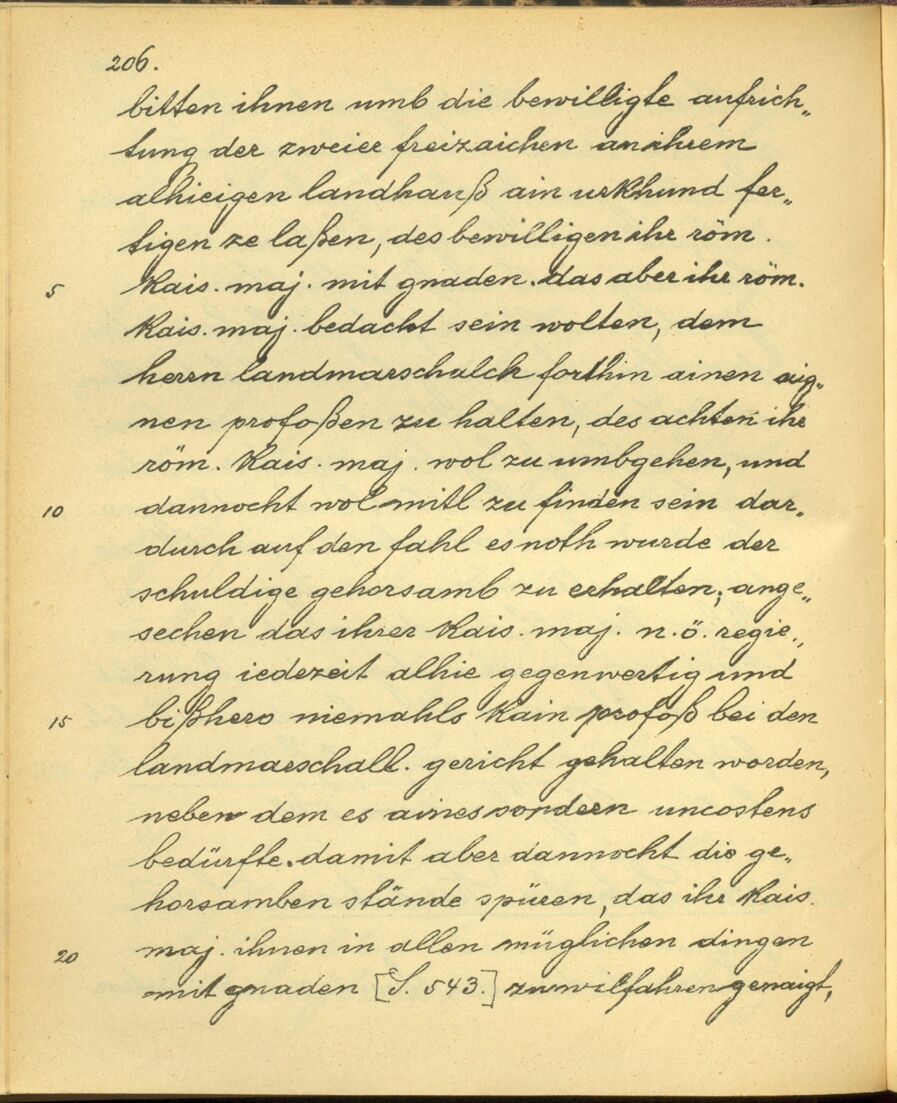 206.
bitten ihnen umb die bewilligte aufrich„
tung der zweier freizaichen an ihrem
alhieigen landhauß ain urkhund fer„
tigen ze laßen, des bewilligen ihr röm.
5 kais. maj. mit gnaden. das aber ihr röm.
kais. maj. bedacht sein wolten, dem
herrn landmarschalch forthin ainen aig„
nen profoßen zu halten, des achten ihr
röm. kais. maj. wol zu umbgehen, und
10 dannocht wol mitl zu finden sein dar„
durch auf den fahl es noth wurde der
schuldige gehorsamb zu erhalten; ange„
sechen das ihrer kais. maj. n. ö. regie„
rung iedezeit alhie gegenwertig und
15 bißhero niemahls kain profoß bei den
landmarschall. gericht gehalten worden,
neben dem es aines sondern uncostens
bedürfte. damit aber dannocht die ge„
horsamben stände spüren, das ihr kais.
20 maj. ihnen in allen müglichen dingen
mit gnaden [S. 543.] zu wilfahren genaigt,